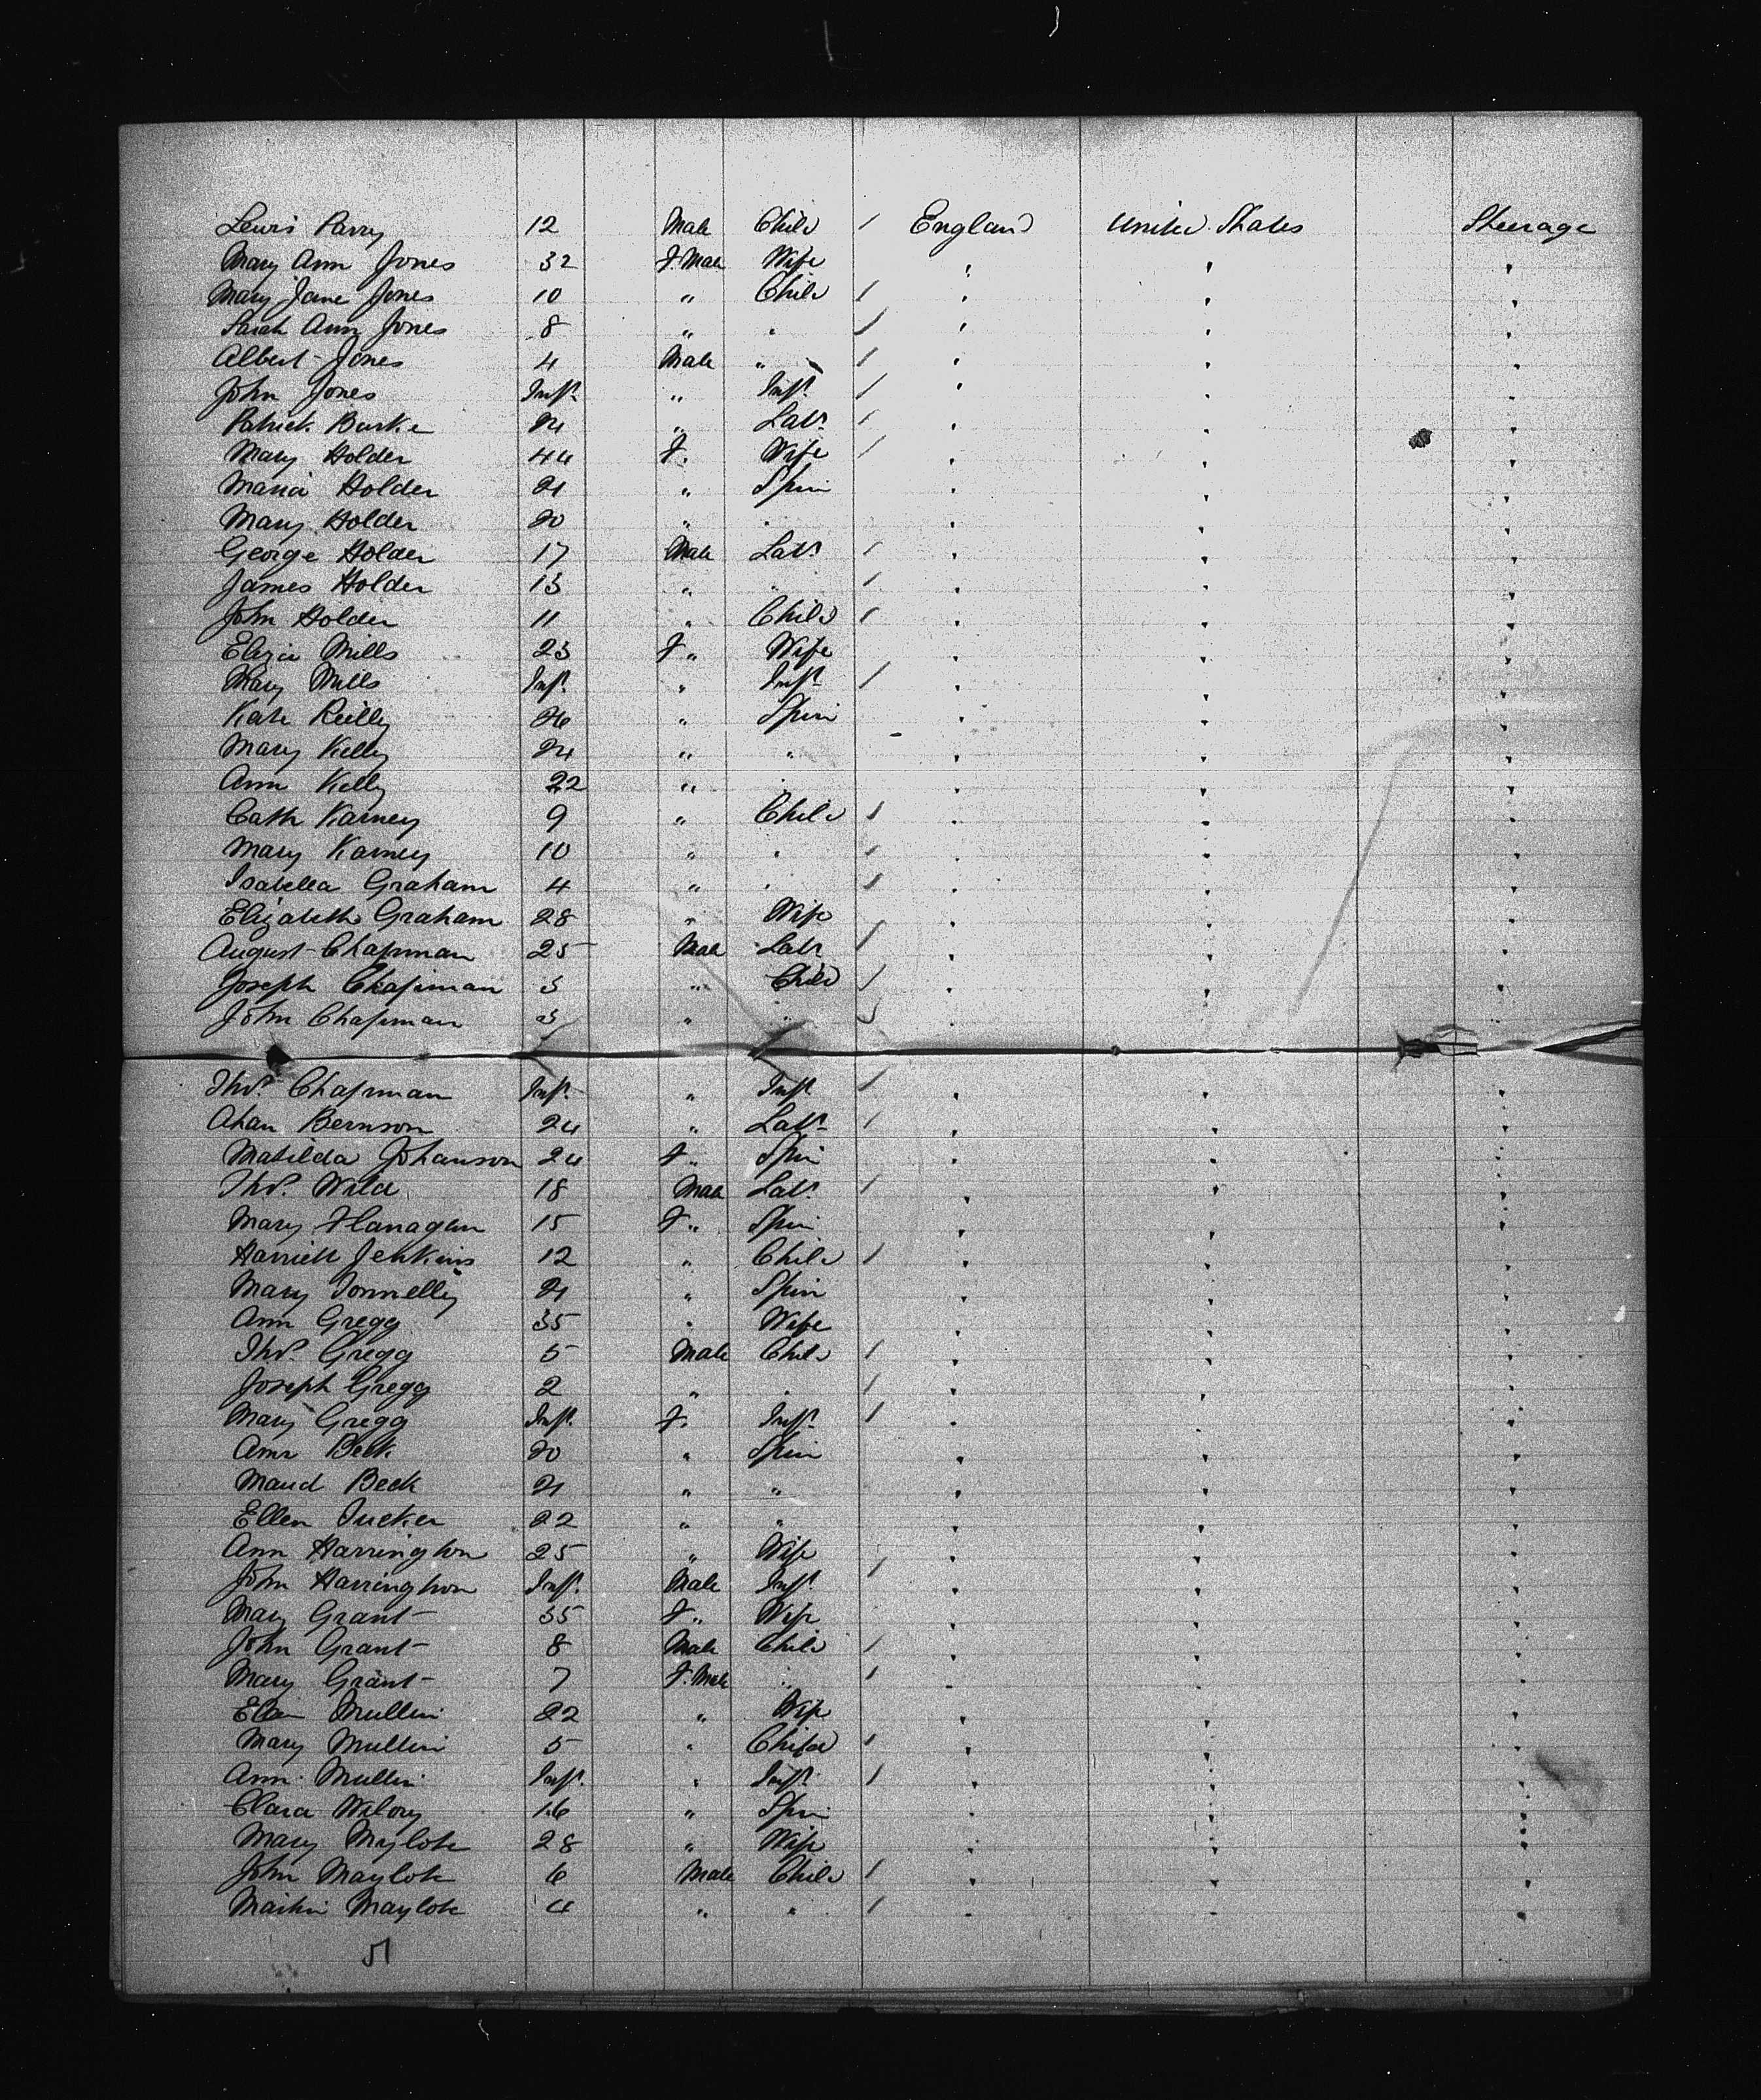 Lewis Parry 12 Male Child / England United States Steerage
Mary Ann Jones 32 F. Male Wife " " "
Mary Jane Jones 10 " Child / " " "
Sarah Ann Jones 8 " " / " " "
Albert Jones 4 Male " / " " "
John Jones Inft. " Inft. / " " "
Patrick Burke 24 " Labr. / " " "
Mary Holder 44 F. Wife / " " "
Maria Holder 21 " Spin " " "
Mary Holder 20 " " " " "
George Holder 17 Male Labr. / " " "
James Holder 13 " " / " " "
John Holder 11 " Child / " " "
Eliza Mills 23 F " Wife " " "
Mary Mills Inft. " Inft. / " " "
Kate Reilly 26 " Spin " " "
Mary Kelly 24 " " " " "
Ann Kelly 22 " " " " "
Cath Karney 9 " Child / " " "
Mary Karney 10 " " / " " "
Isabella Graham 4 " " / " " "
Elizabeth Graham 28 " Wife " " "
August Chapman 25 Male Labr / " " "
Joseph Chapman 5 " Child / " " "
John Chapman 3 " " / " " "
Thos. Chapman Inft. " Inft. / " " "
Bernson 24 " Labr. / " " "
Matilda Johanson 24 F " Spin " " "
Thos. Wild 18 Male Labr. / " " "
Mary Flanagan 15 F " Spin " " "
Harriett Jenkins 12 " Child / " " "
Mary Donnelly 21 " Spin " " "
Ann Gregg 35 " Wife " " "
Thos. Gregg 5 Male Child / " " "
Joseph Gregg 2 " " / " " "
Mary Gregg Inft. F. Inft. / " " "
Beck 20 " Spin " " "
Maud Beck 21 " " " " "
Ellen Tucker 22 " " " " "
Ann Harrington 25 " Wife " " "
John Harrington Inft. Male Inft. / " " "
Mary Grant 35 F " Wife " " "
John Grant 8 Male Child / " " "
Mary Grant 7 F. Male " / " " "
Mullin 22 " Wife " " "
Mary Mullin 5 " Child / " " "
Ann Mullin Inft. " Inft. / " " "
Clara 16 " Spin " " "
Mary 28 " Wife " " "
John 6 Male Child / " " "
4 " " / " " "
51